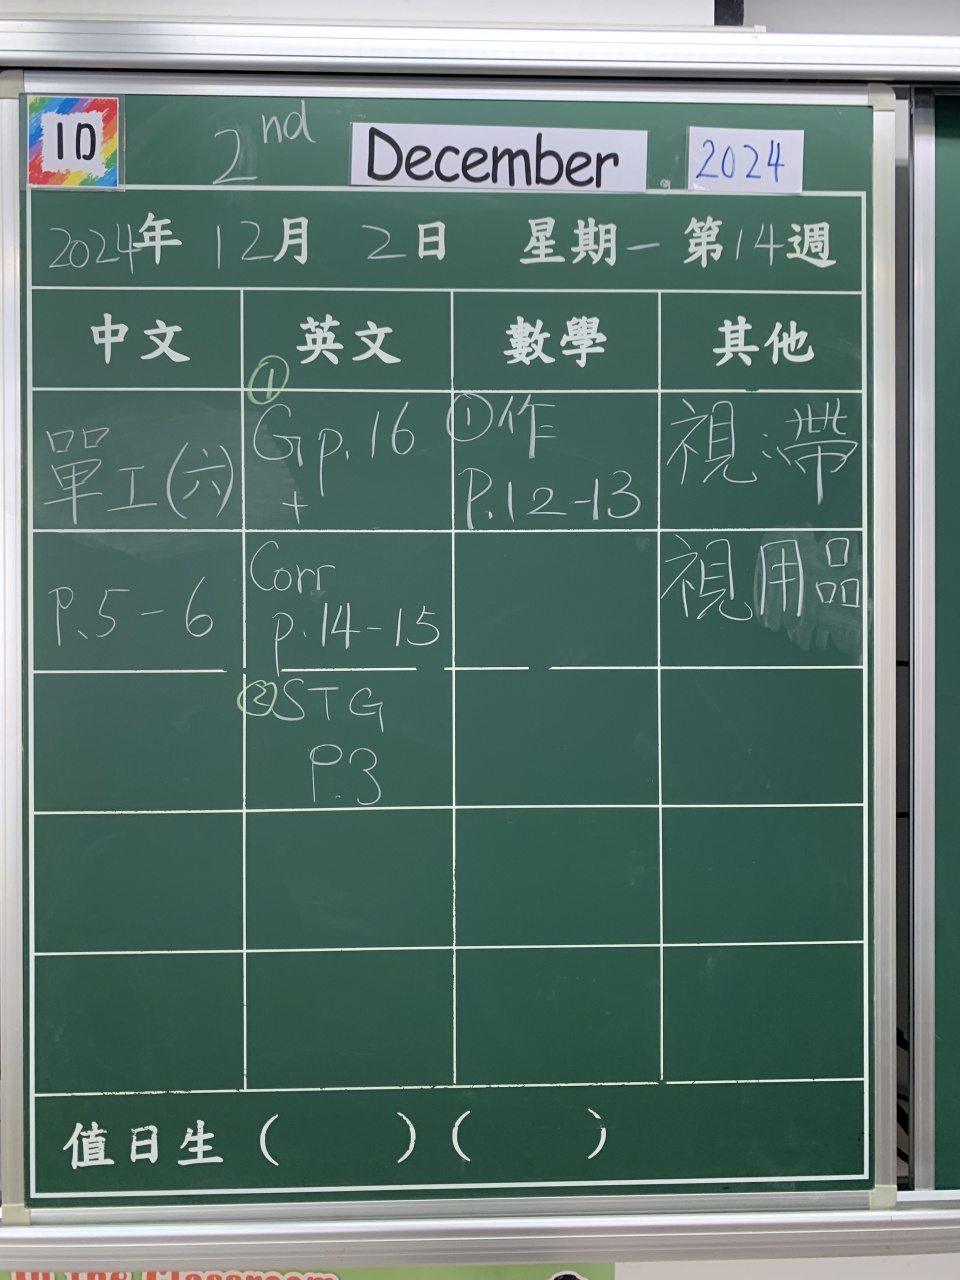 1D
2nd December 2024
2024年 12月 2日 星期一 第14週
中文 英文 數學 其他
單工(六)
P.5-6
①
Gp.16
+
Corr
p.14-15
②STG
P.3
①作
P.12-13
視:帶
視用品
值日生 ( ) ( )
In the Classroom